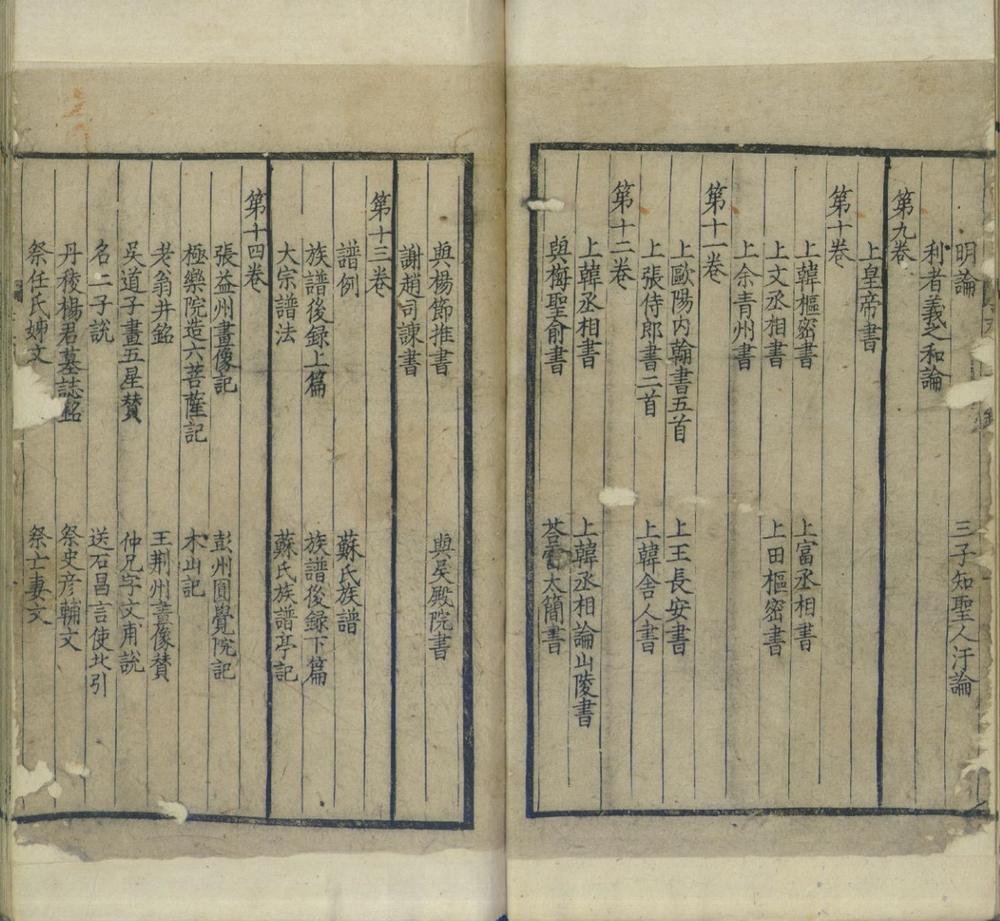 明論 三子知聖人汙論
利者義之和論
第九卷
上皇帝書
第十卷
上韓樞密書 上富丞相書
上文丞相書 上田樞密書
上余青州書
第十一卷
上歐陽內翰書五首 上王長安書
上張侍郎書二首 上韓舍人書
第十二卷
上韓丞相書 上韓丞相論山陵書
與梅聖俞書 荅雷太簡書
與楊節推書 與吳殿院書
謝趙司諫書
第十三卷
譜例 蘇氏族譜
族譜後録上篇 族譜後録下篇
大宗譜法 蘇氏族譜亭記
第十四卷
張益州畫像記 彭州圓覺院記
極樂院造六菩薩記 木山記
老翁井銘 王荆州畫像賛
吳道子畫五星賛 仲兄字文甫說
名二子說 送石昌言使北引
丹稜楊君墓誌銘 祭史彥輔文
祭任氏姊文 祭亡妻文